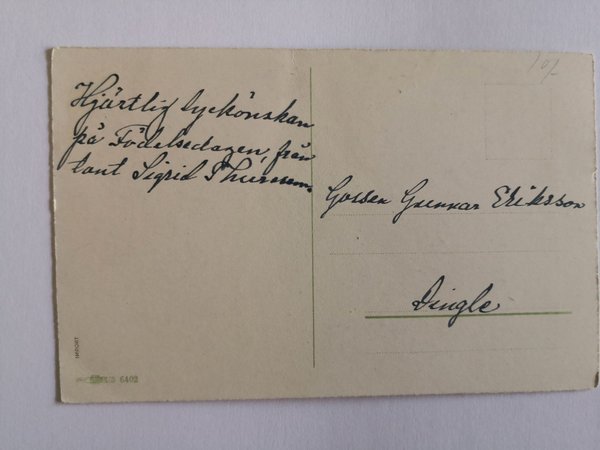 Hjärtlig lyckönskan
på Födelsedagen, från
tant Sigrid
Gossen Gunnar Eriksson
Dingle
IMPORT
6402
10/-